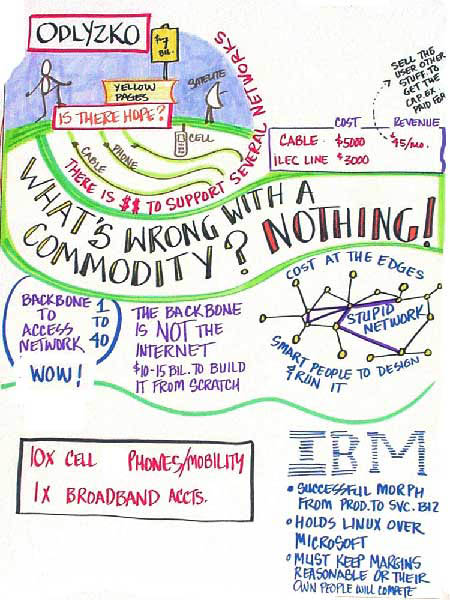 ODLYZKO
$7
BIL.
YELLOW
PAGES
SATELITE
IS THERE HOPE?
CELL
CABLE
PHONE
THERE IS $$ TO SUPPORT SEVERAL NETWORKS
SELL THE
USER OTHER
STUFF. TO
GET THE
CAP. EX
PAID FER
COST REVENUE
CABLE. $5000 $45/MO.
ILEC LINE $3000
WHAT'S WRONG WITH A
COMMODITY? NOTHING!
BACKBONE
TO
ACCESS
NETWORK
1
TO
40
WOW!
THE BACKBONE
IS NOT THE
INTERNET
$10-15 BIL. TO BUILD
IT FROM SCRATCH
COST AT THE EDGES
STUPID
NETWORK
SMART PEOPLE TO DESIGN
& RUN IT
10X CELL PHONES/MOBILITY
1X BROADBAND ACCTS.
IBM
• SUCCESSFUL MORPH
FROM PROD. TO SVC. BIZ
• HOLDS LINUX OVER
MICROSOFT
• MUST KEEP MARGINS
REASONABLE OR THEIR
OWN PEOPLE WILL COMPETE